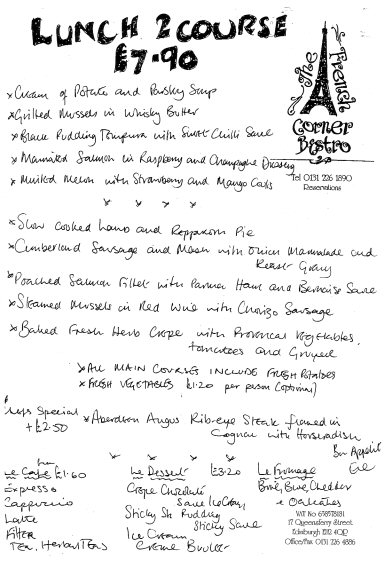 LUNCH 2 COURSE
£7.90
The French
Corner
Bistro
Tel 0131 226 1890
Reservations
* Cream of Potato and Parsley Soup
* Grilled Mussels in Whisky Butter
* Black Pudding Tempura with Sweet Chilli Sauce
* Marinated Salmon in Raspberry and Champagne Dressing
* Minted Melon with Strawberry and Mango Coulis
* Slow cooked Lamb and Rosemary Pie
* Cumberland Sausage and Mash with Onion Marmalade and
Roast Gravy
* Poached Salmon Fillet with Parma Ham and Bernaise Sauce
* Steamed Mussels in Red Wine with Chorizo Sausage
* Baked Fresh Herb Crepe with Provencal Vegetables,
tomatoes and Gruyere
* ALL MAIN COURSES INCLUDE FRESH POTATOES
* FRESH VEGETABLES £1.20 per person (optional)
Chefs Special
+ £2.50
* Aberdeen Angus Rib-eye Steak flamed in
Cognac with Horseradish
Bon Appétit
from
Le Café £1.60
Espresso
Cappuccino
Latte
Filter
Tea, Herbal Teas
Le Dessert £3.20
Crepe Chocolate
Sauce Ice Cream
Sticky Pudding
Sticky Sauce
Ice Cream
Creme Brulee
Le Fromage
Brie, Blue, Cheddar
& Oatcakes
VAT No 658578181
17 Queensferry Street
Edinburgh EH2 4QP
Office/Fax 0131 226 4886